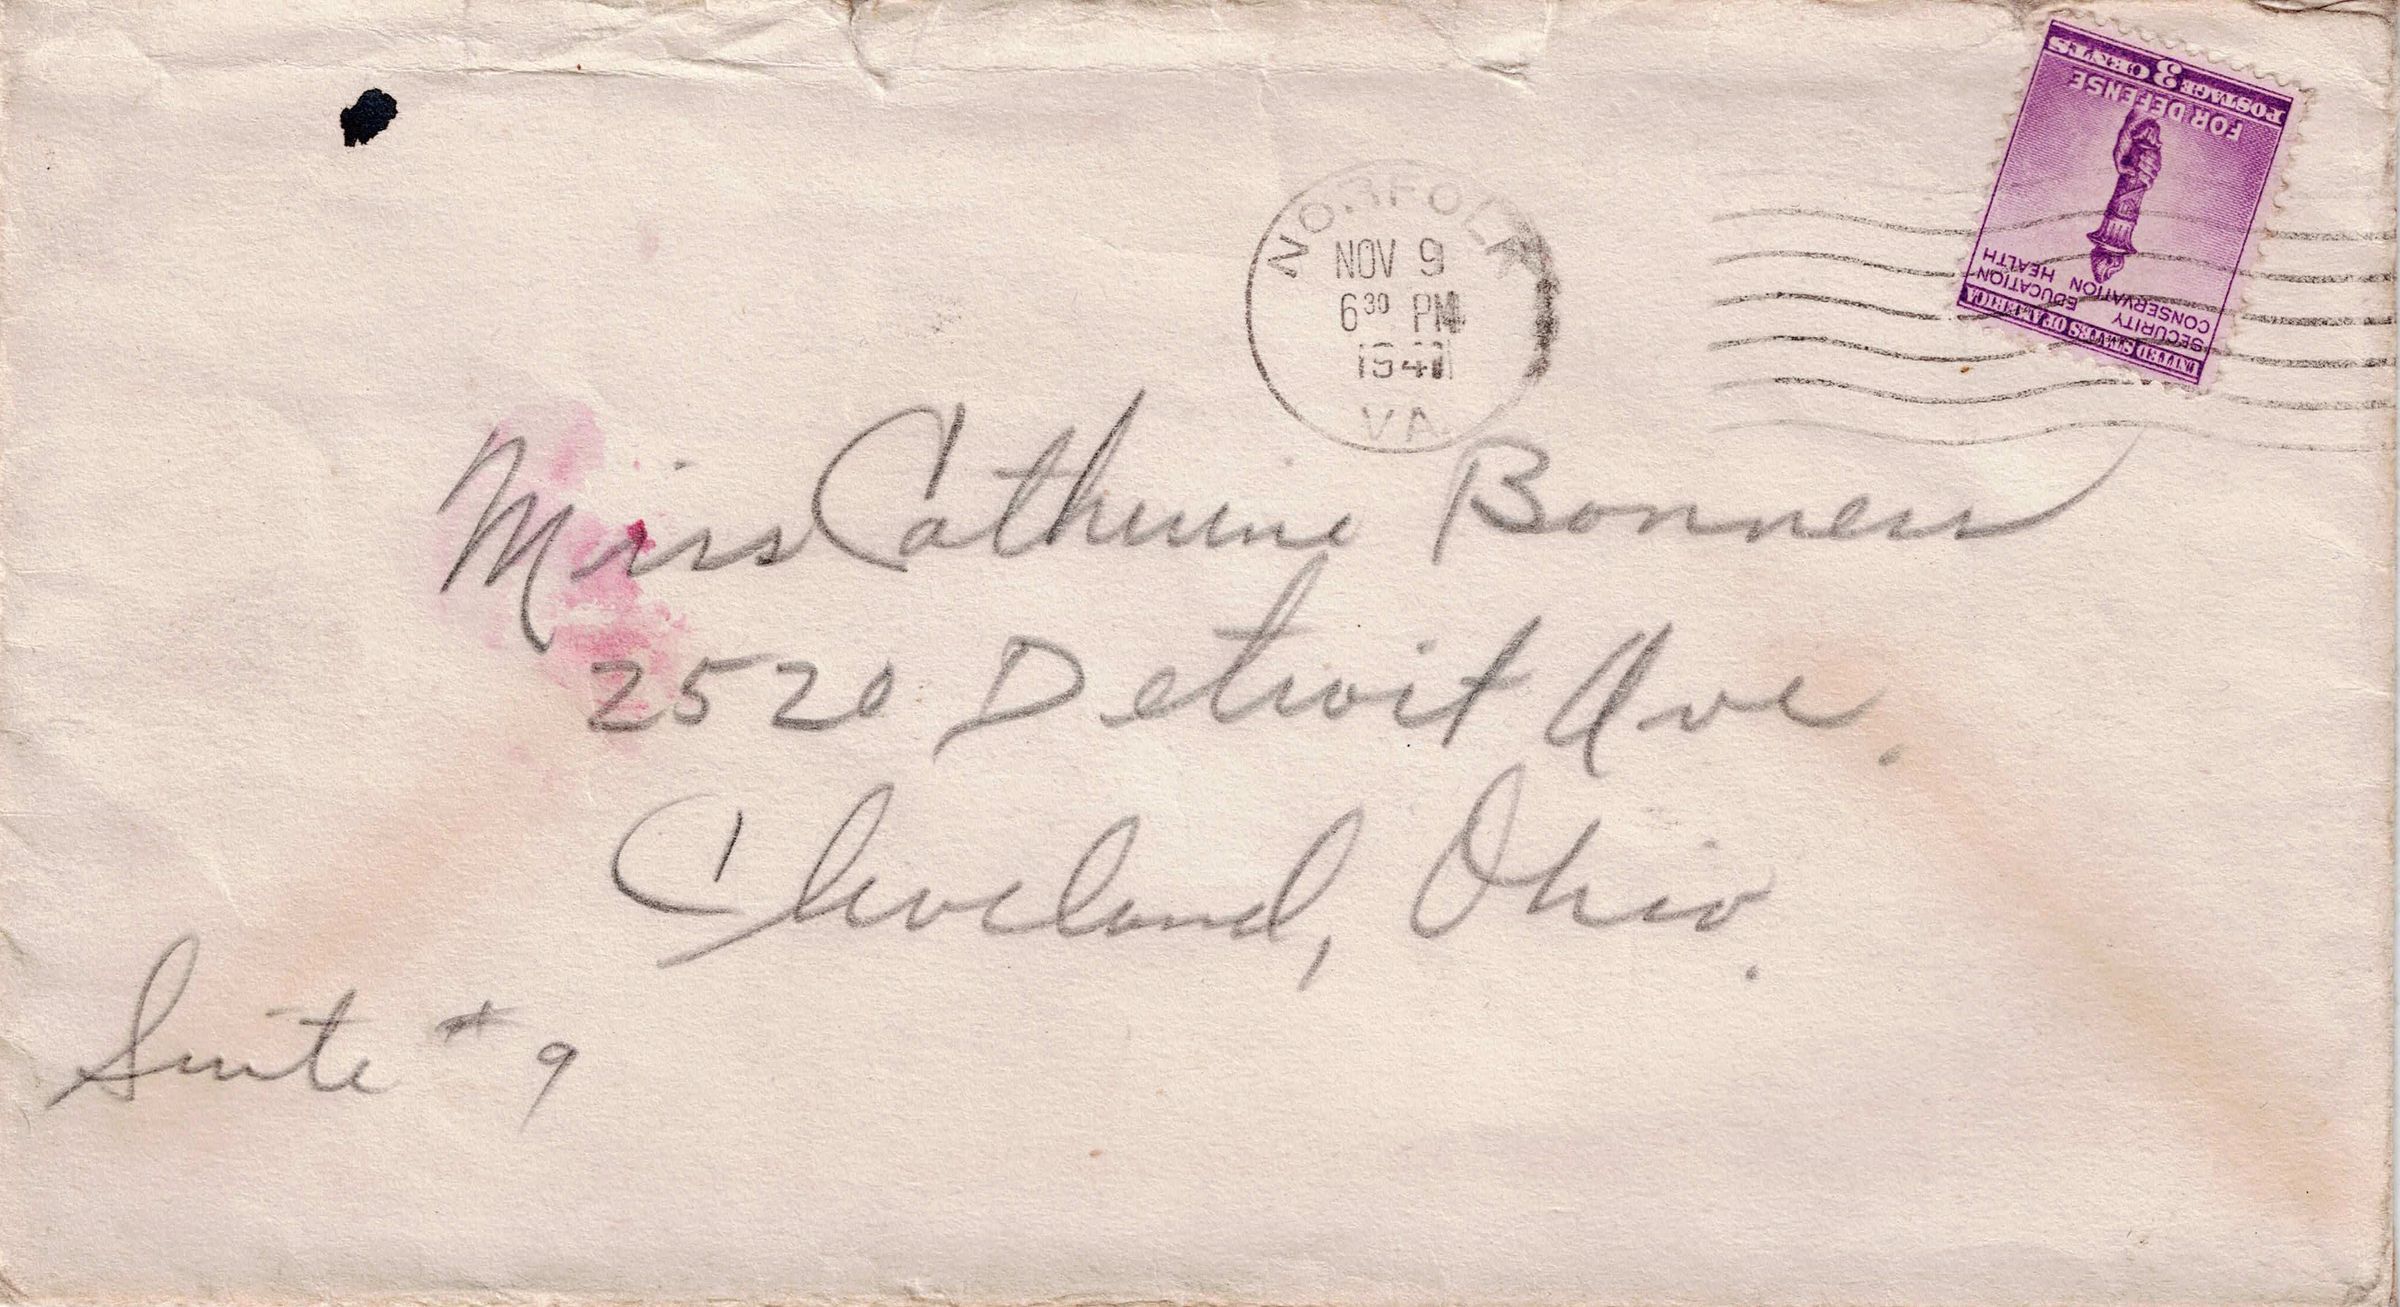 POSTAGE 3 CENTS
FOR DEFENSE
SECURITY
EDUCATION
CONSERVATION
HEALTH
UNITED STATES OF AMERICA
NORFOLK
NOV 9
6 30 PM
1941
VA.
Miss Catherine
2520 Detroit Ave.
Cleveland, Ohio.
Suite # 9